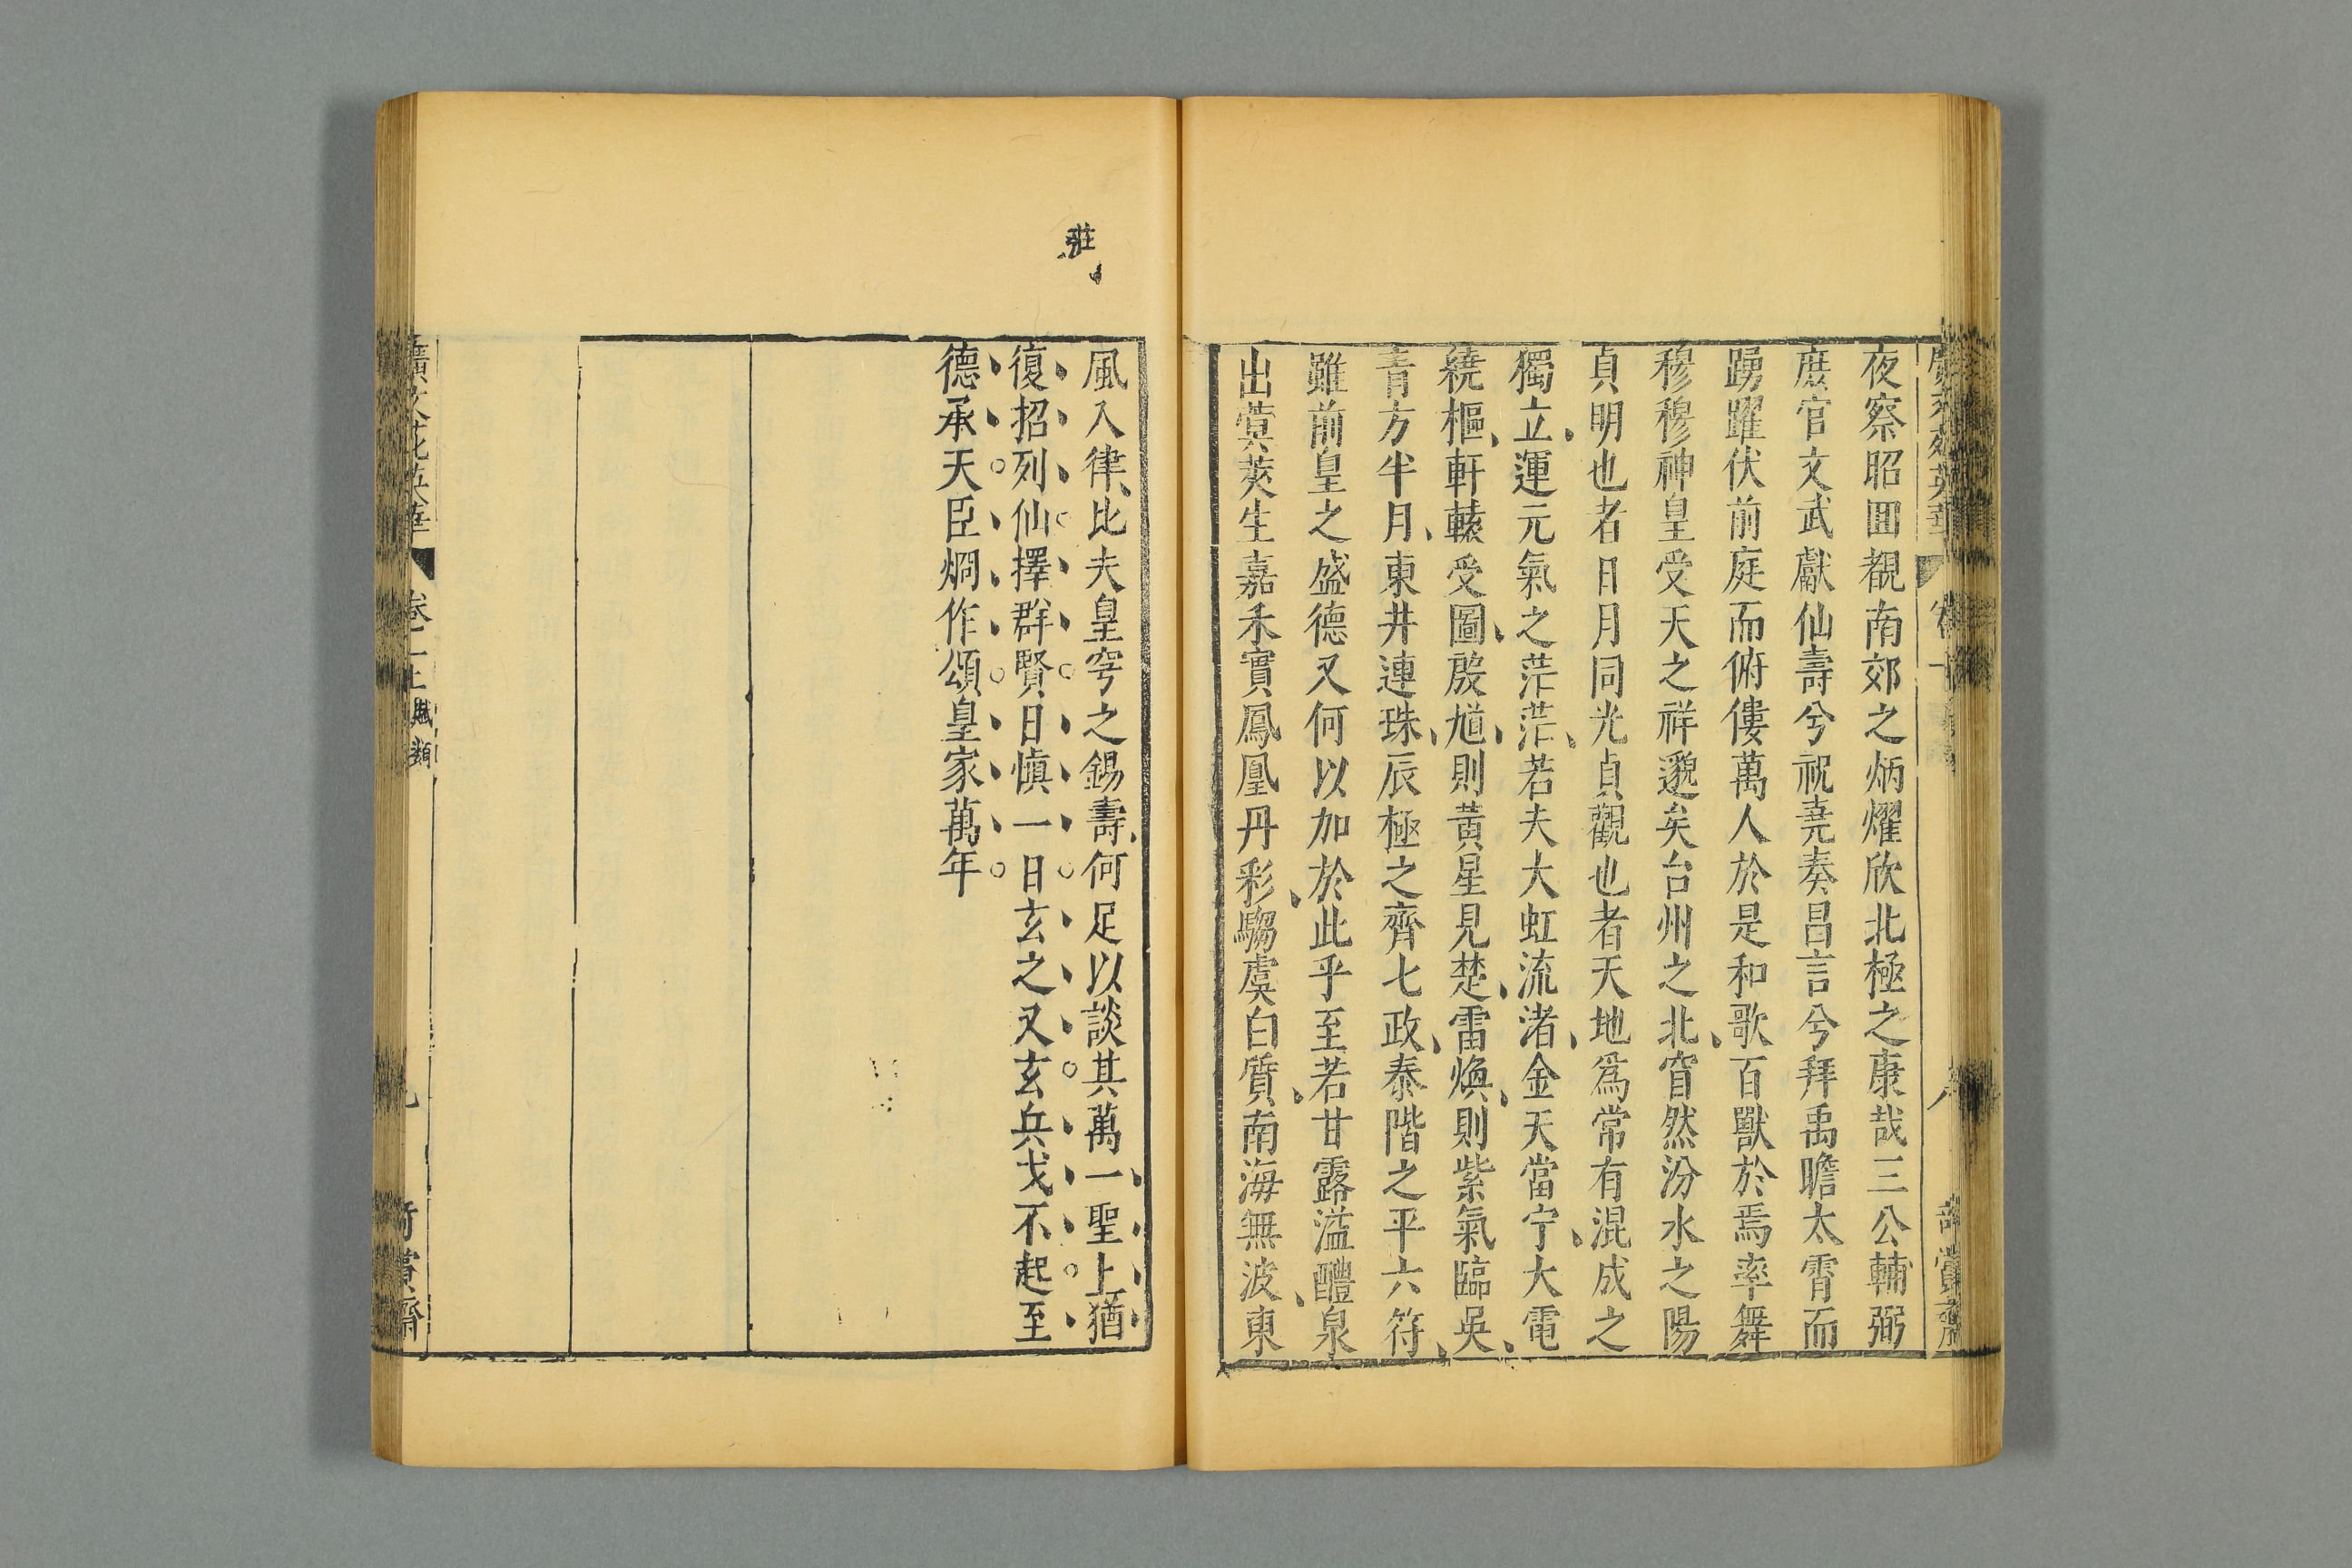 夜察昭囬覩南郊之炳燿欣北極之康哉三公輔弼
庻官文武獻仙壽兮祝堯奏昌言兮拜禹瞻太霄而
踴躍伏前庭而俯僂萬人於是和歌百獸於焉率舞
穆穆神皇受天之祥邈矣台州之北窅然汾水之陽
貞明也者日月同光貞觀也者天地爲常有混成之
獨立運元氣之茫茫若夫大虹流渚金天當宁大電
繞樞軒轅受圖殷馗則黃星見楚雷煥則紫氣臨吳
青方半月東井連珠辰極之齊七政泰階之平六符
雖前皇之盛德又何以加於此乎至若甘露溢醴泉
出蓂莢生嘉禾實鳳凰丹彩騶虞白質南海無波東
莊
風入律比夫皇穹之錫壽何足以談其萬一聖上猶
復招列仙擇群賢日愼一日玄之又玄兵戈不起至
德承天臣烱作頌皇家萬年
廣文苑英華 卷二上賦類